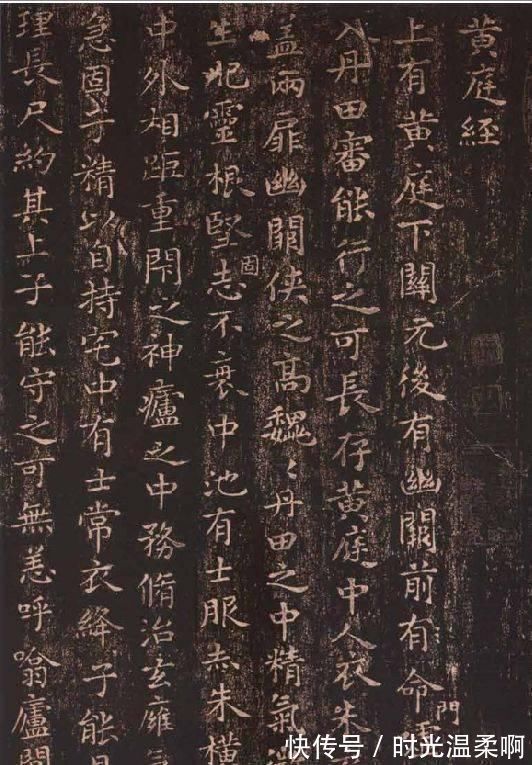 黄庭經
上有黄庭下關元後有幽闕前有命門
入丹田審能行之可長存黄庭中人衣朱
盖兩扉幽闕俠之高巍〻丹田之中精氣
生肥靈根堅固志不衰中池有士服赤朱橫
中外相距重閇之神廬之中務脩治玄廱
急固子精以自持宅中有士常衣絳子能
理長尺約其上子能守之可無恙呼噏廬間
快传号 / 时光温柔啊